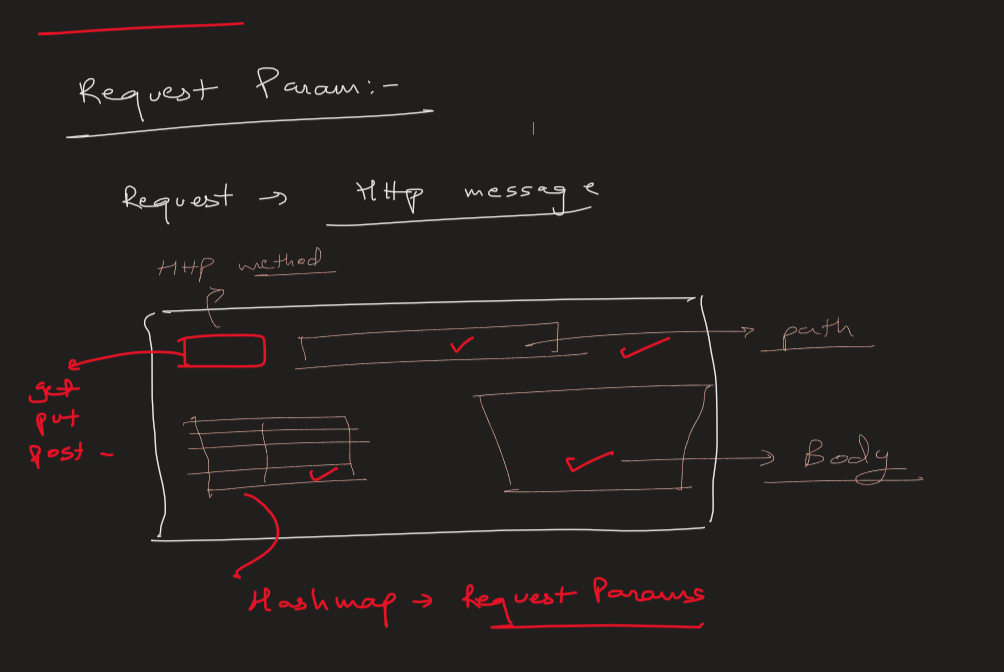 Request Param:-
Request → Http message
Http method
path
get
put
post -
Body
Hashmap → Request Params